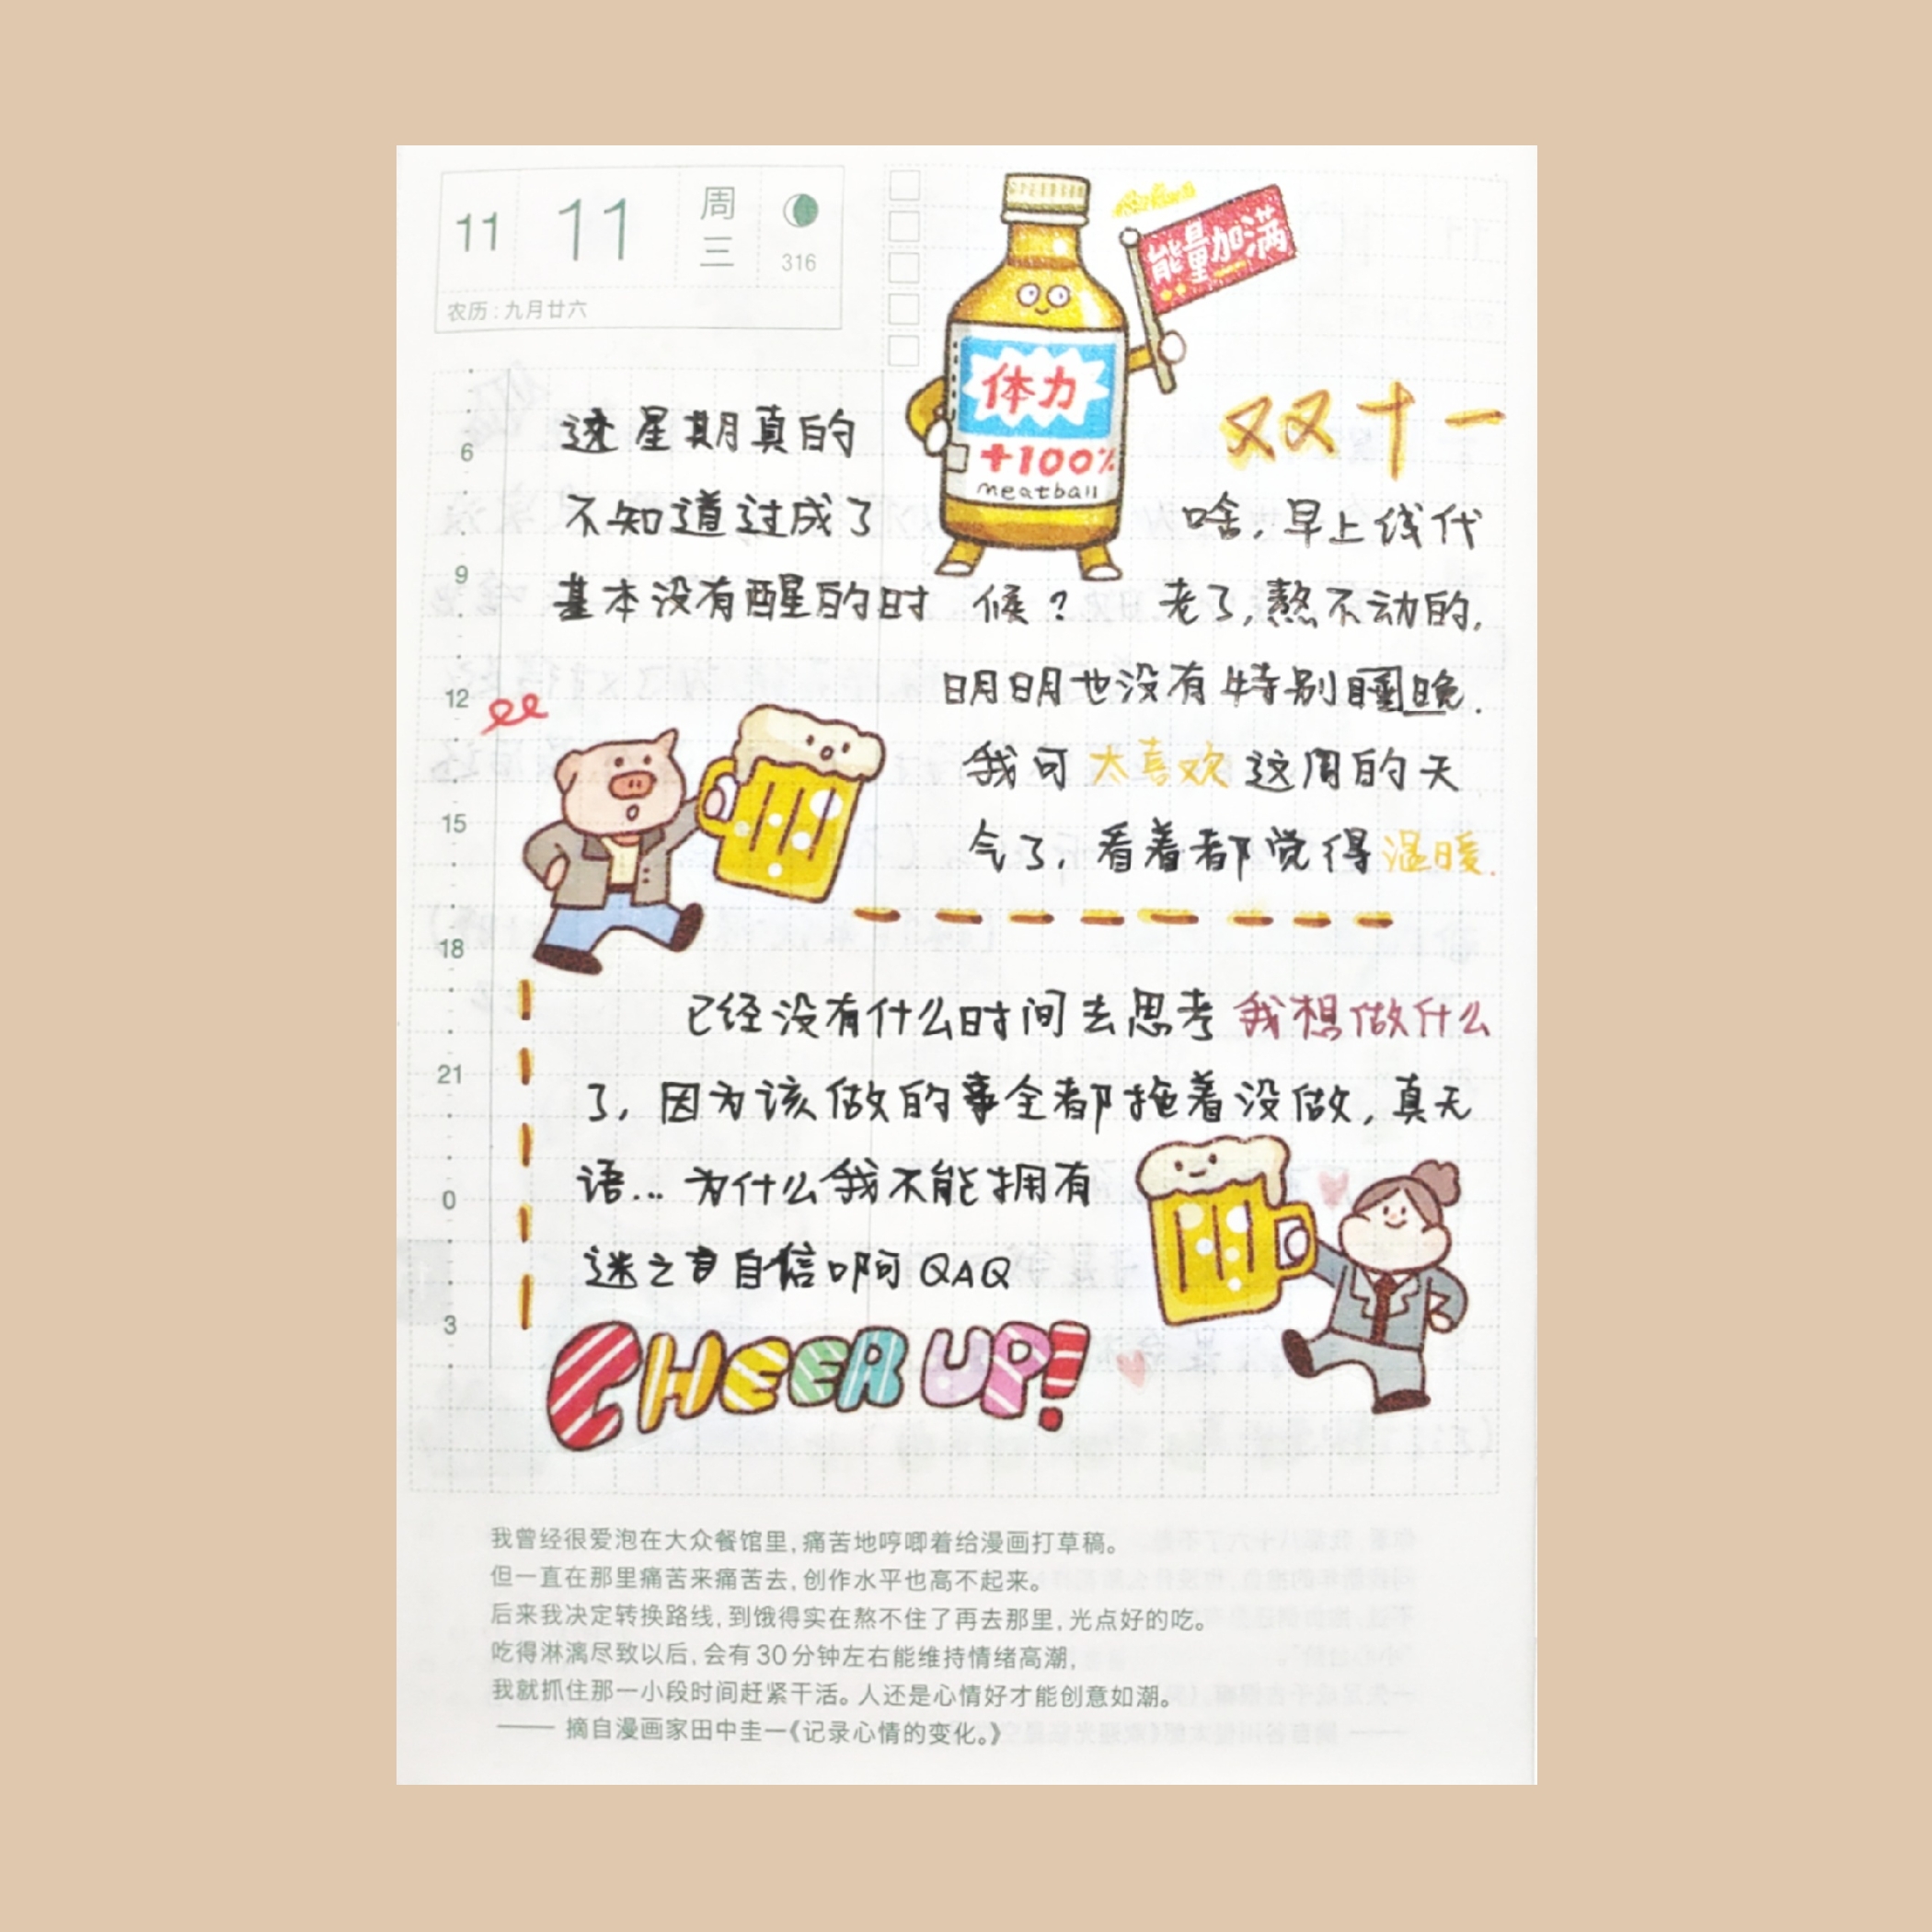 11 11 周三
316
农历:九月廿六
能量加满
体力
+100%
meatball
双十一
这星期真的
不知道过成了啥,早上线代
基本没有醒的时候? 老了,熬不动的,
明明也没有特别睡晚.
我可太喜欢这周的天
气了,看着都觉得温暖.
已经没有什么时间去思考我想做什么
了,因为该做的事全都拖着没做,真无
语...为什么我不能拥有
迷之自信啊QAQ
CHEER UP!
6
9
12
15
18
21
0
3
我曾经很爱泡在大众餐馆里,痛苦地哼唧着给漫画打草稿。
但一直在那里痛苦来痛苦去,创作水平也高不起来。
后来我决定转换路线,到饿得实在熬不住了再去那里,光点好的吃。
吃得淋漓尽致以后,会有30分钟左右能维持情绪高潮,
我就抓住那一小段时间赶紧干活。人还是心情好才能创意如潮。
—— 摘自漫画家田中圭一《记录心情的变化。》